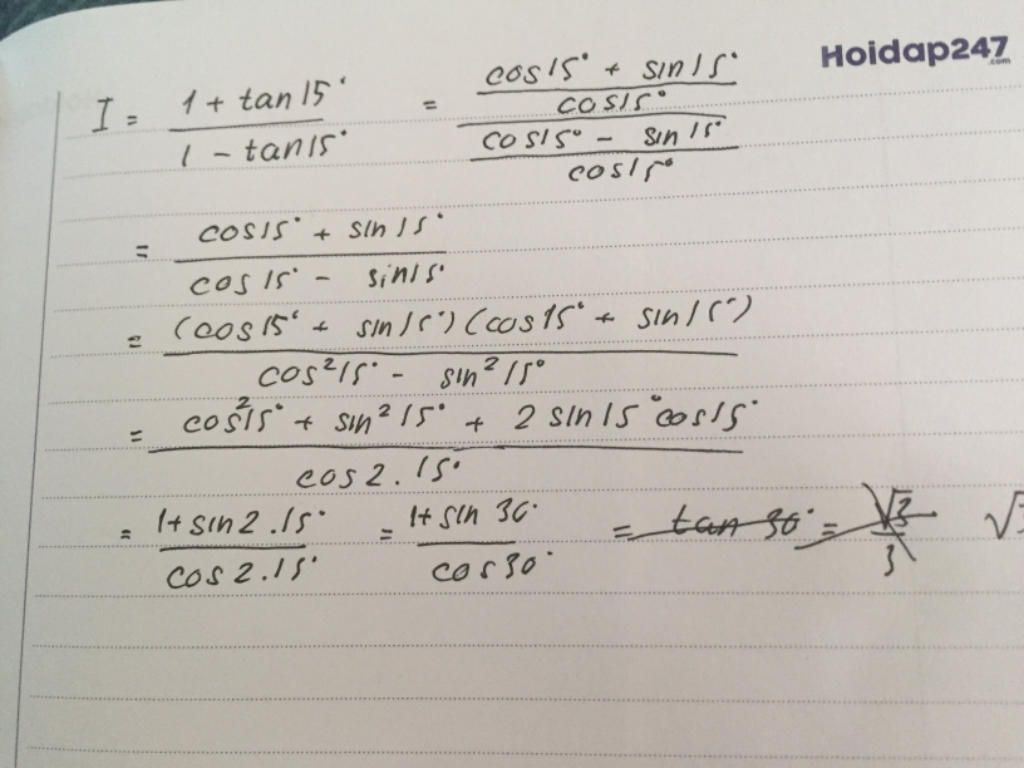 Hoidap247.com
I = (1 + tan15°)/(1 - tan15°) = ((cos15° + sin15°)/cos15°)/((cos15° - sin15°)/cos15°)
= (cos15° + sin15°)/(cos15° - sin15°)
= ((cos15° + sin15°)(cos15° + sin15°))/(cos²15° - sin²15°)
= (cos²15° + sin²15° + 2 sin15°cos15°)/(cos2.15°)
= (1+sin2.15°)/(cos2.15°) = (1+sin30°)/(cos30°) = tan30° = √3/3